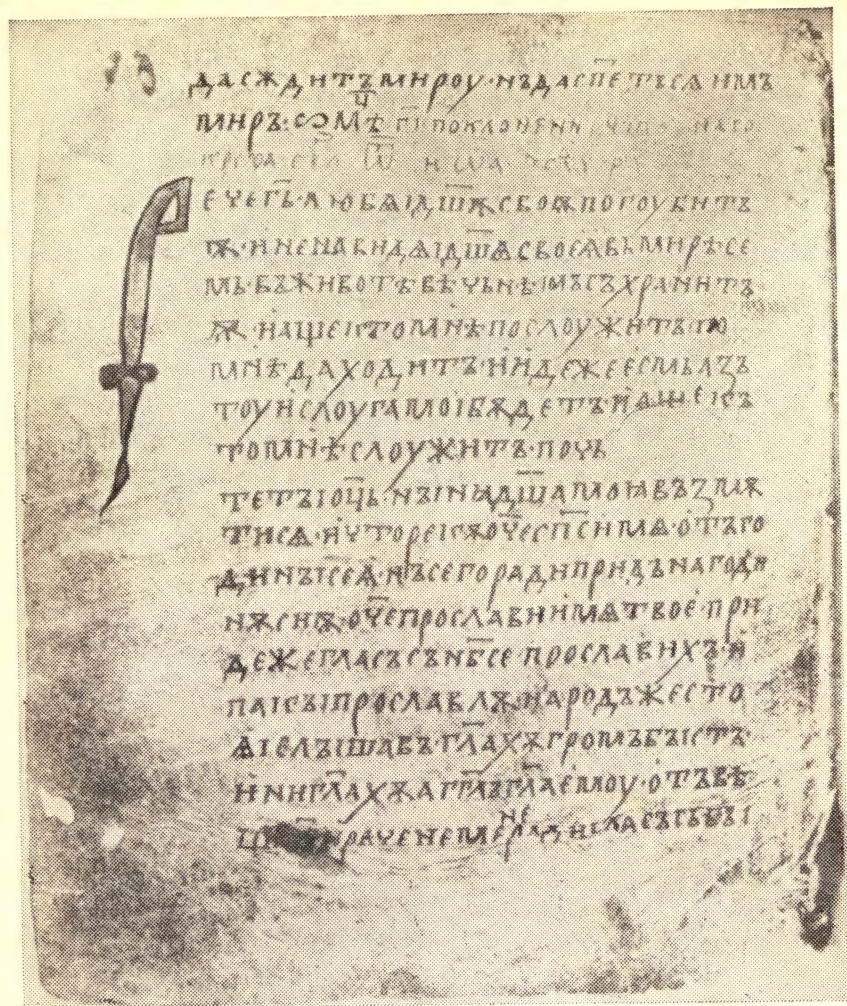 да сѫдитъ мироу · нъ да сп҃етъ сѧ имъ
миръ ·
рече г҃ъ · любѧі дш҃ѫ своѭ погоубитъ
ѭ · и ненавидѧі дш҃ѧ своеѧ въ мирѣ се
мь · въ животѣ вѣчьнѣімъ съхранитъ
ѭ · и аще кто мнѣ послоужитъ по
мнѣ да ходитъ · и идеже есмь азъ
тоу и слоуга моі бѫдетъ · и аще къ
то мнѣ слоужитъ · почь
тетъ і оц҃ь · нꙑнꙗ дш҃а моꙗ възмѧ
ти сѧ · и чьто рекѫ оч҃е сп҃си мѧ · отъ го
динꙑ сеѧ · нъ сего ради придъ на годи
нѫ сиѭ · оч҃е прослави имѧ твое · при
де же гласъ съ нб҃се прославихъ · и
пакꙑ прославлѭ · народъ же сто
ѧі слꙑшавъ · гл҃ахѫ громъ бꙑстъ ·
ини гл҃ахѫ аг҃глъ гл҃а емоу · отъвѣ
рече не мене ради гласъ сь бꙑ